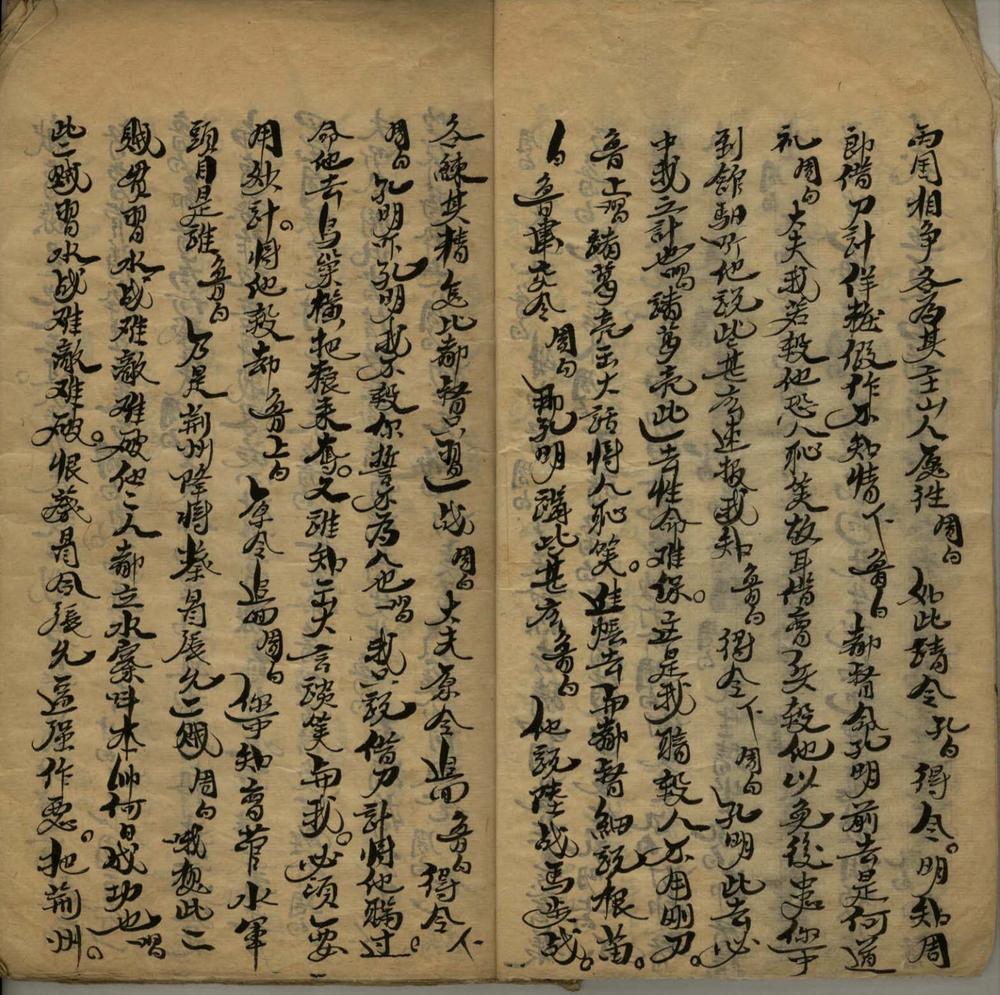 两国相争各为其主山人愿往周白如此請令孔白得令。明知周
郎借刀計佯粧假作不知情下魯白都督命孔明前去是何道
礼周白大夫我若殺他恐人恥笑故耳借曹兵殺他以免後患你可
到館馹听他說些甚広速报我知魯白得令下周白孔明此去必
中我之計也唱諸葛亮此去性命难保。正是我瞞殺人不用鋼刀。
魯上唱諸葛亮出大話將人恥笑。進帳去向都督細說根苗。
白魯肃交令周白那孔明講些甚広魯白他說陸战馬步战。
各練其精怎比都督只習一战周白大夫原令追回魯白得令下
周白孔明亦孔明我不殺你誓不為人也唱我只說借刀計將他瞞过。
命他去鳥巢橫把粮来奪。又誰知出大言談笑与我。必須要
用妙計。將他殺却魯上白原令追回周白你可知曹营水軍
頭目是誰魯白乃是荆州降將蔡冒張允二贼周白哦想此二
贼贯習水战难敵难破。他二人都立水寨吽本帅何日成功也唱
此二贼習水战难敵难破。恨蔡冒合張允逞强作惡。把荆州。